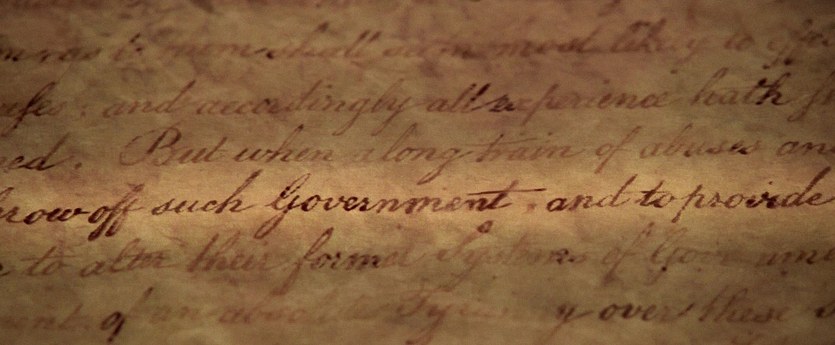 to them shall seem most likely to effe
uses; and accordingly all experience hath sh
ed. But when a long train of abuses and
hrow off such Government, and to provide
to alter their former Systems of Governme
ent of an absolute Tyranny over these